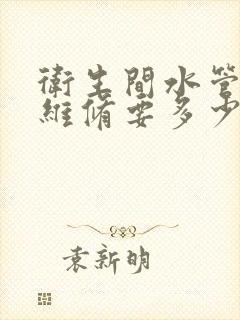 衛生間水管
維脩要多少
袁新明